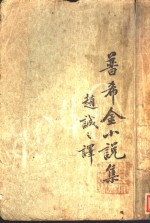 普希金小說集
趙誠之譯